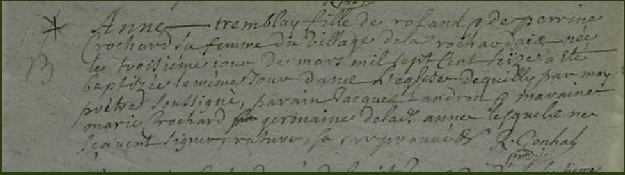 Anne tremblay fille de rolland & de perrine
Crochard sa femme du village de la née
le troisième jour de mars mil sept Cent seize a été
baptizée le même Jour dans l'eglise de quilly par moy
prêtre soussigné, parain Jacques Landron & maraine
marie Crochard germaine de la ditte anne lesquels ne
sçavent signer, rature, approuvé R. Gonhal
prêtre